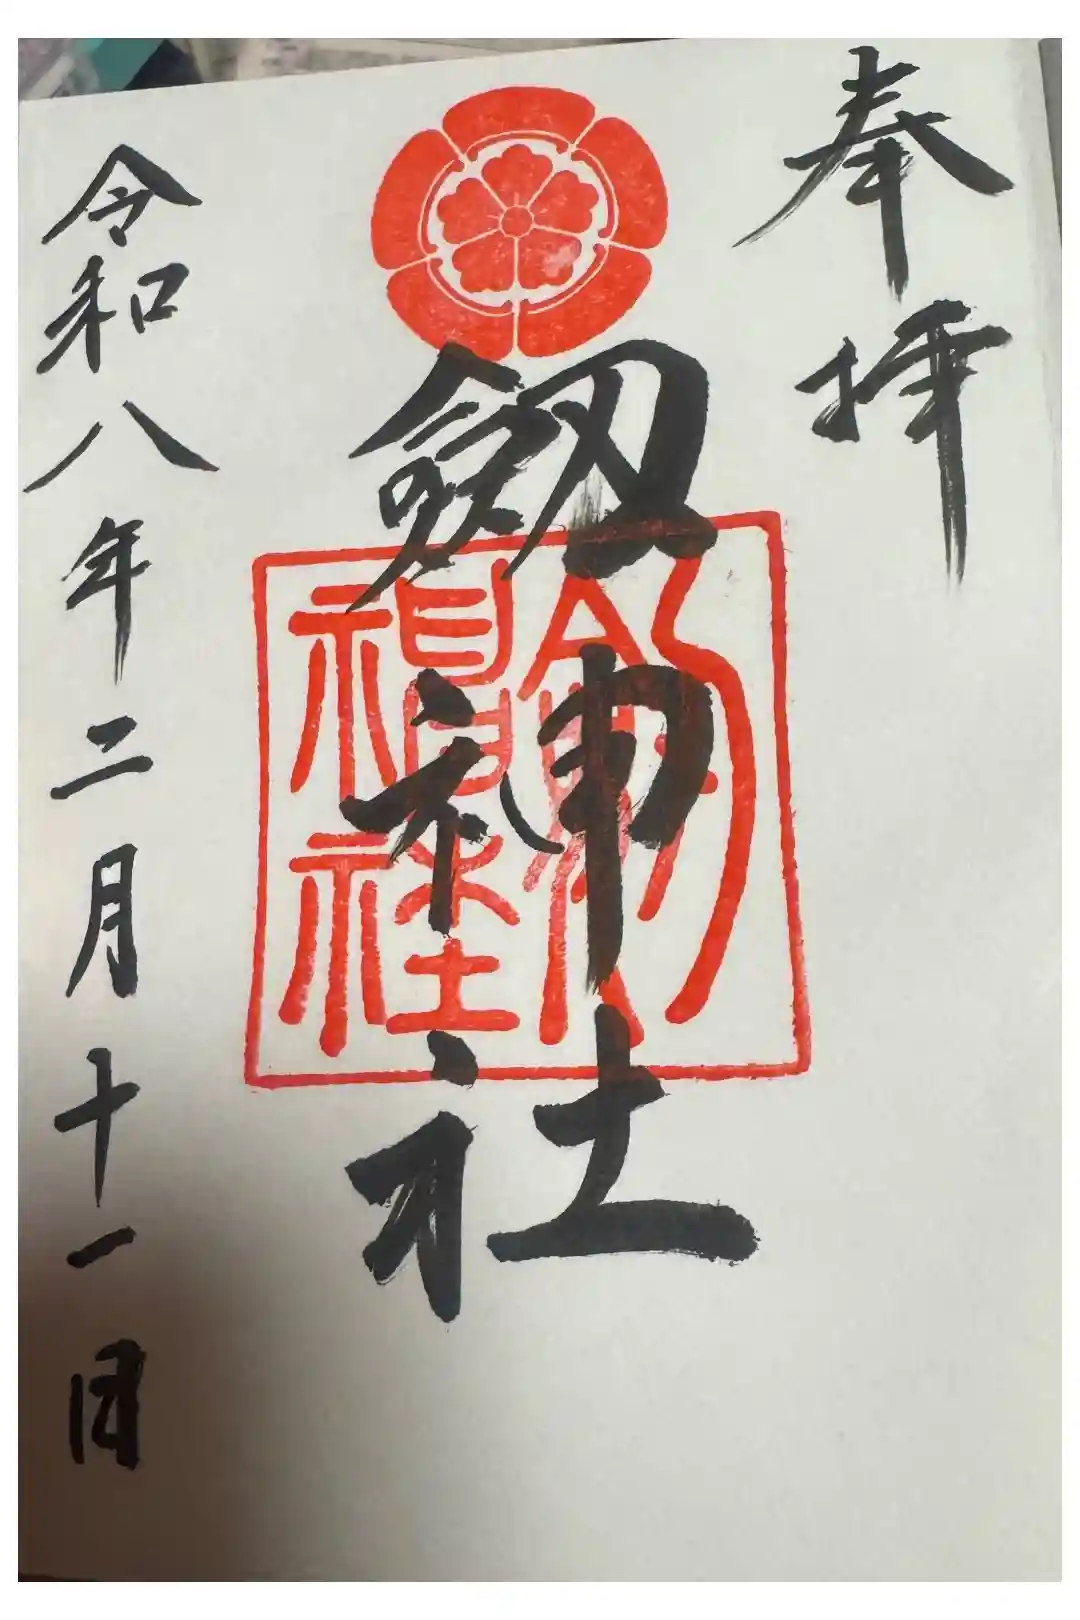 奉拝
劔神社
劔神社
令和八年二月十一日